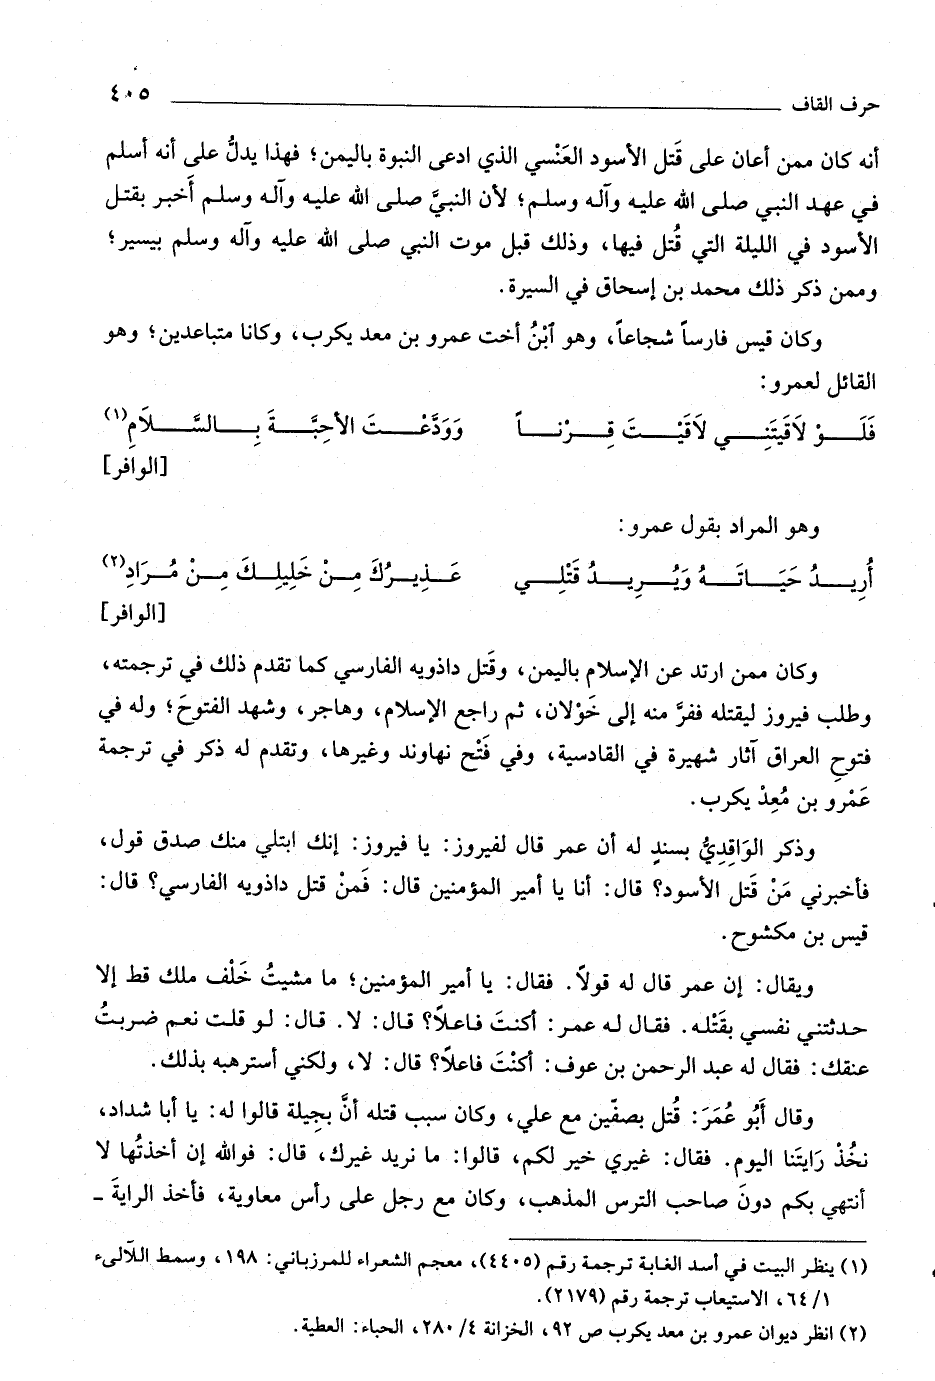 حرف القاف ٤٠٥
أنه كان ممن أعان على قَتل الأسود العَنْسي الذي ادعى النبوة باليمن؛ فهذا يدلُّ على أنه أسلم
في عهد النبي صلى الله عليه وآله وسلم؛ لأن النبيَّ صلى الله عليه وآله وسلم أَخبر بقتل
الأسود في الليلة التي قُتل فيها، وذلك قبل موت النبي صلى الله عليه وآله وسلم بيسير؛
وممن ذكر ذلك محمد بن إسحاق في السيرة.
وكان قيس فارساً شجاعاً، وهو ٱبْنُ أخت عمرو بن معد يكرب، وكانا متباعدين؛ وهو
القائل لعمرو:
فَلَوْ لَاقَيْتَنِي لَاقَيْتَ قِرْناً وَوَدَّعْتَ الأَحِبَّةَ بِالسَّلَامِ(١)
[الوافر]
وهو المراد بقول عمرو:
أُرِيدُ حَيَاتَهُ وَيُرِيدُ قَتْلِي عَذِيرُكَ مِنْ خَلِيلِكَ مِنْ مُرَادِ(٢)
[الوافر]
وكان ممن ارتد عن الإسلام باليمن، وقَتل داذويه الفارسي كما تقدم ذلك في ترجمته،
وطلب فيروز ليقتله ففرَّ منه إلى خَوْلان، ثم راجع الإسلام، وهاجر، وشهد الفتوحَ؛ وله في
فتوحِ العراق آثار شهيرة في القادسية، وفي فَتْح نهاوند وغيرها، وتقدم له ذكر في ترجمة
عَمْرو بن مُعِدْ يكرب.
وذكر الوَاقِدِيُّ بسندٍ له أن عمر قال لفيروز: يا فيروز: إنك ابتلي منك صدق قول،
فأخبرني مَنْ قَتل الأسود؟ قال: أنا يا أمير المؤمنين قال: فَمنْ قتل داذويه الفارسي؟ قال:
قيس بن مكشوح.
ويقال: إن عمر قال له قولاً. فقال: يا أمير المؤمنين؛ ما مشيتُ خَلْف ملك قط إلا
حدثتني نفسي بقَتْله. فقال له عمر: أكنتَ فاعلاً؟ قال: لا. قال: لو قلت نعم ضربتُ
عنقك: فقال له عبد الرحمن بن عوف: أكنْتَ فاعلاً؟ قال: لا، ولكني أسترهبه بذلك.
وقال أَبُو عُمَرَ: قُتل بصفّين مع علي، وكان سبب قتله أنَّ بجِيلة قالوا له: يا أبا شداد،
نخُذْ رَايتَنا اليوم. فقال: غيري خير لكم، قالوا: ما نريد غيرك، قال: فوالله إن أخذتُها لا
أنتهي بكم دونَ صاحب الترس المذهب، وكان مع رجل على رأس معاوية، فأخذ الرايةَ ـ
(١) ينظر البيت في أسد الغابة ترجمة رقم (٤٤٠٥)، معجم الشعراء للمرزباني: ١٩٨، وسمط اللآلىء
١/ ٦٤، الاستيعاب ترجمة رقم (٢١٧٩).
(٢) انظر ديوان عمرو بن معد يكرب ص ٩٢، الخزانة ٤/ ٢٨٠، الحباء: العطية.